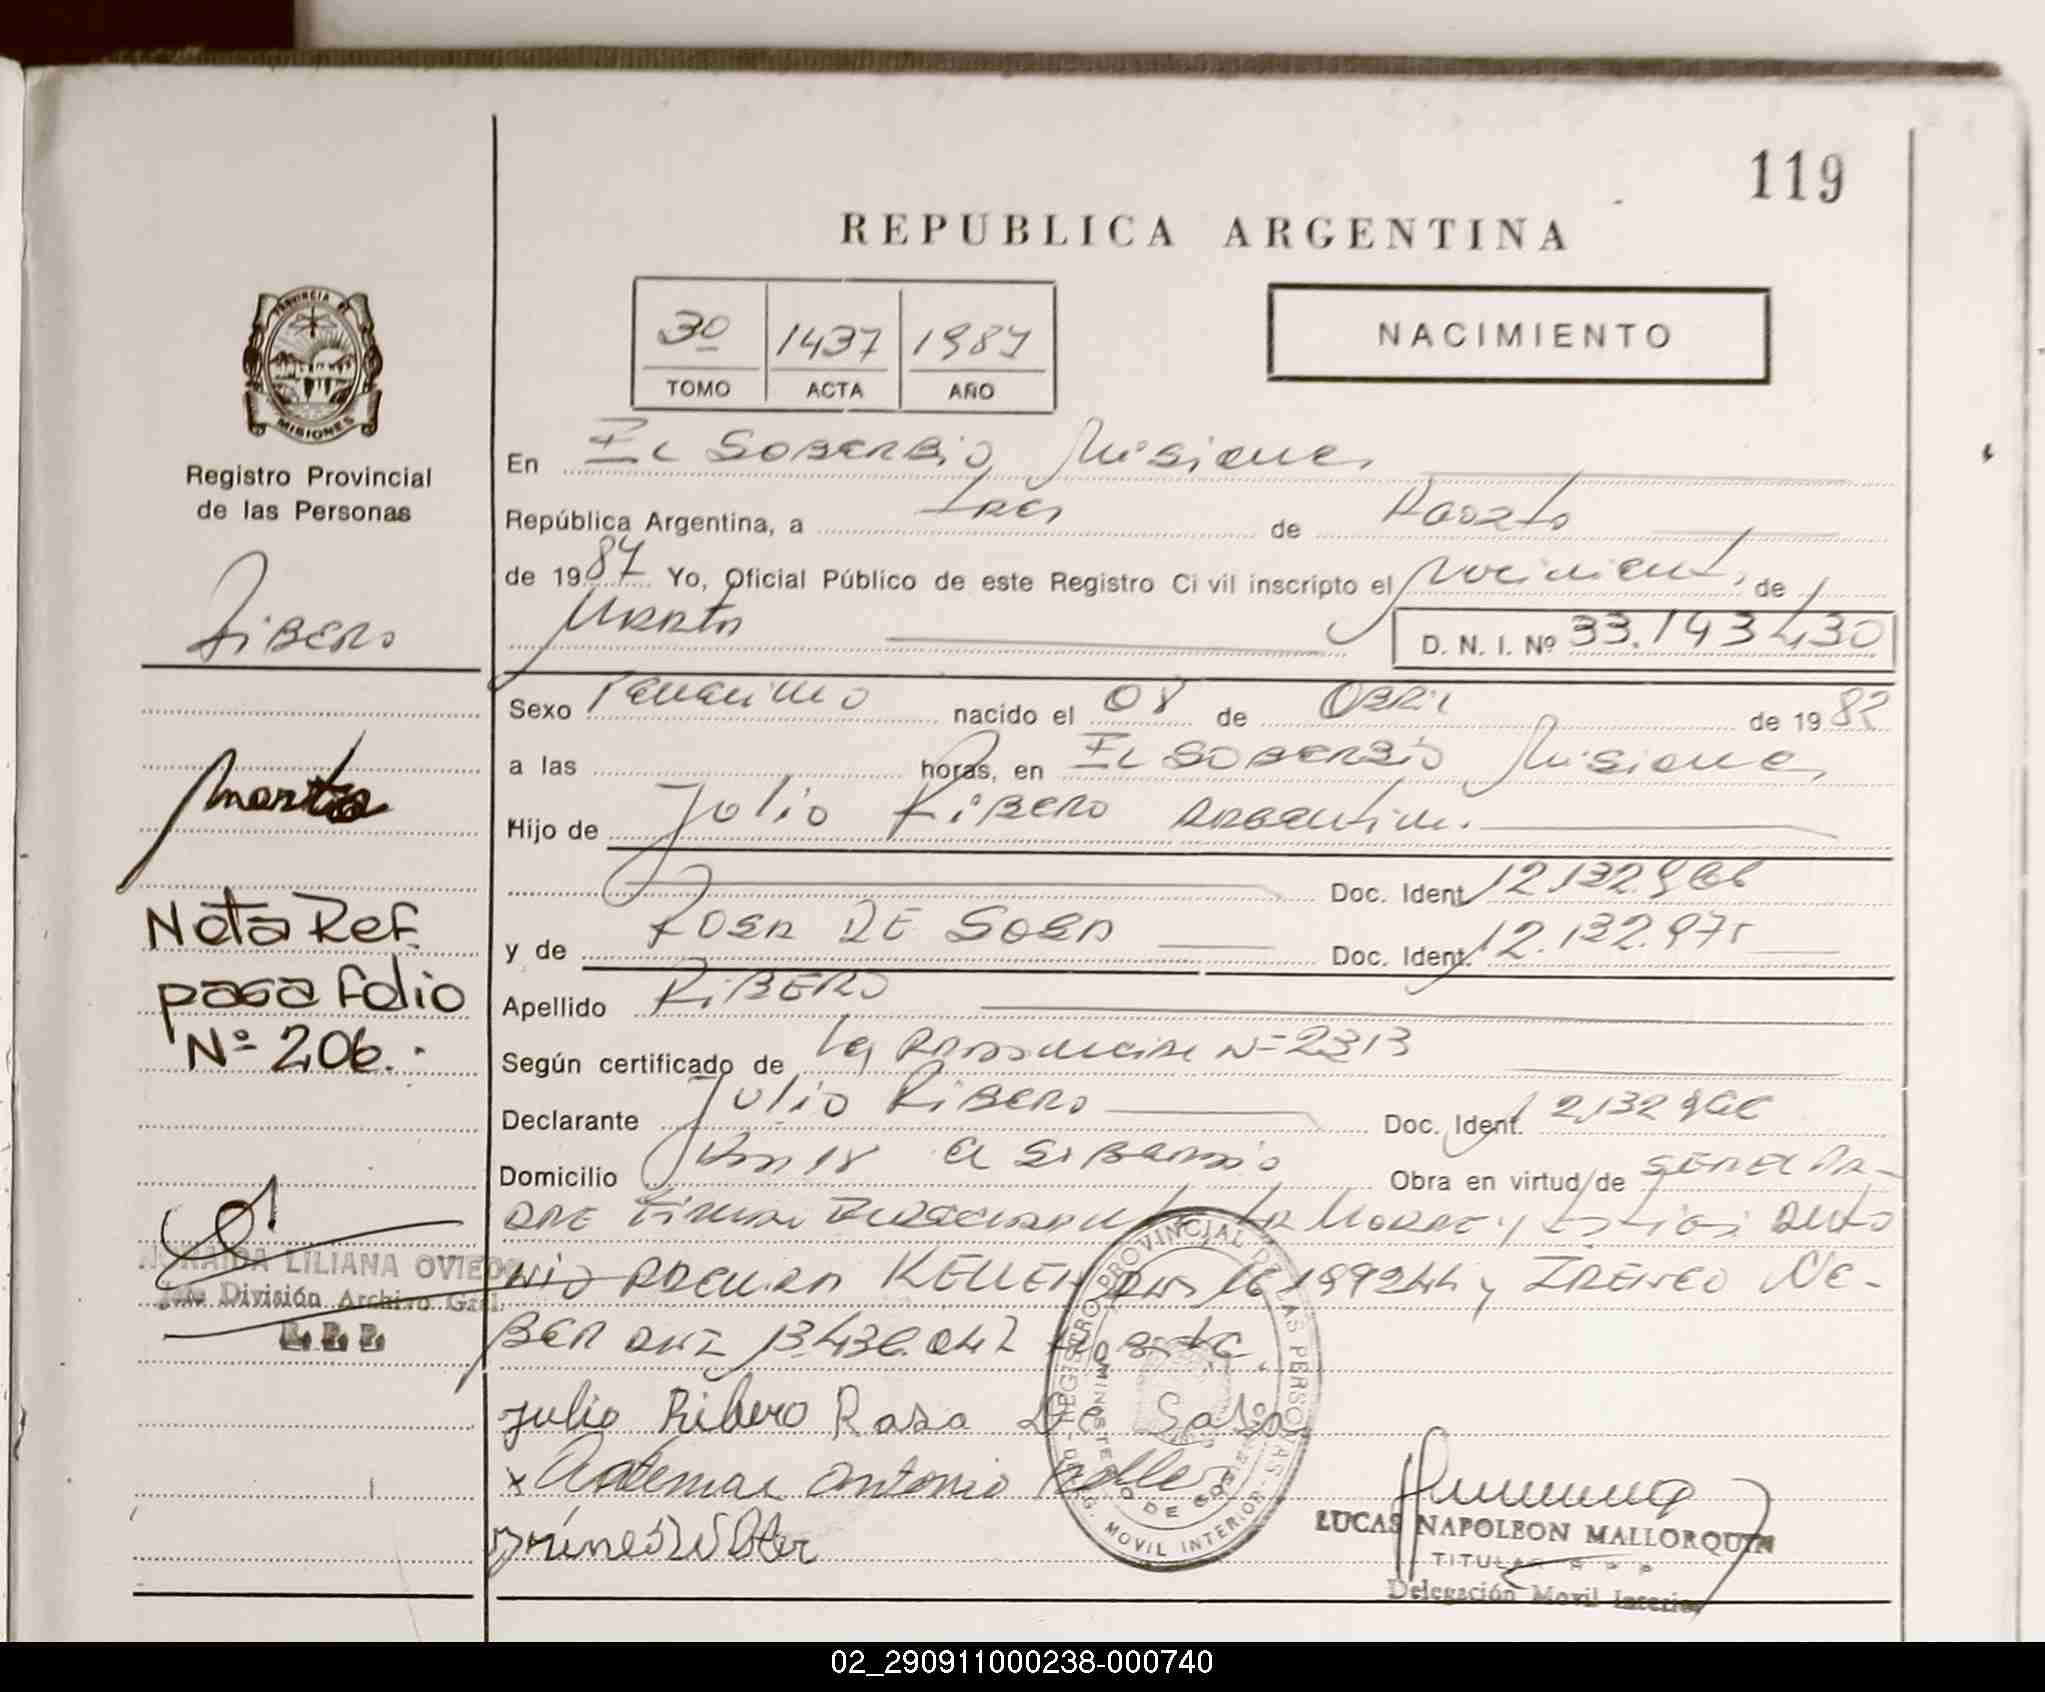 119
REPUBLICA ARGENTINA
3º 1437 1987
TOMO ACTA AÑO
NACIMIENTO
PROVINCIA DE
MISIONES
Registro Provincial
de las Personas
Ribero
Marta
Nota Ref.
pasa folio
Nº 206.
LILIANA OVIEDO
División Archivo Gral.
R. P. P.
En El Soberbio Misiones
República Argentina, a tres de Agosto
de 1987 Yo, Oficial Público de este Registro Civil inscripto el nacimiento de
Marta
D. N. I. Nº 33.143.430
Sexo Femenino nacido el 08 de Abril de 1982
a las horas, en El Soberbio Misiones
Hijo de Julio Ribero Argentino
Doc. Ident. 12.132.966
y de Rosa De Sosa Doc. Ident. 12.132.975
Apellido Ribero
Según certificado de Ley Nº 2313
Declarante Julio Ribero Doc. Ident. 12132966
Domicilio Km 18 El Soberbio Obra en virtud de ser el pa-
dre firman la Madre y testigos Anto
nio KELLER DNI 16199244 y Ireneo We-
BER DNI 13.436.042
Julio Ribero Rosa De Sosa
x Antonio Keller
REGISTRO PROVINCIAL DE LAS PERSONAS
MINISTERIO DE GOBIERNO
DELEG. MOVIL INTERIOR
LUCAS NAPOLEON MALLORQUIN
TITULAR R P P
Delegación Movil Interior
02_290911000238-000740